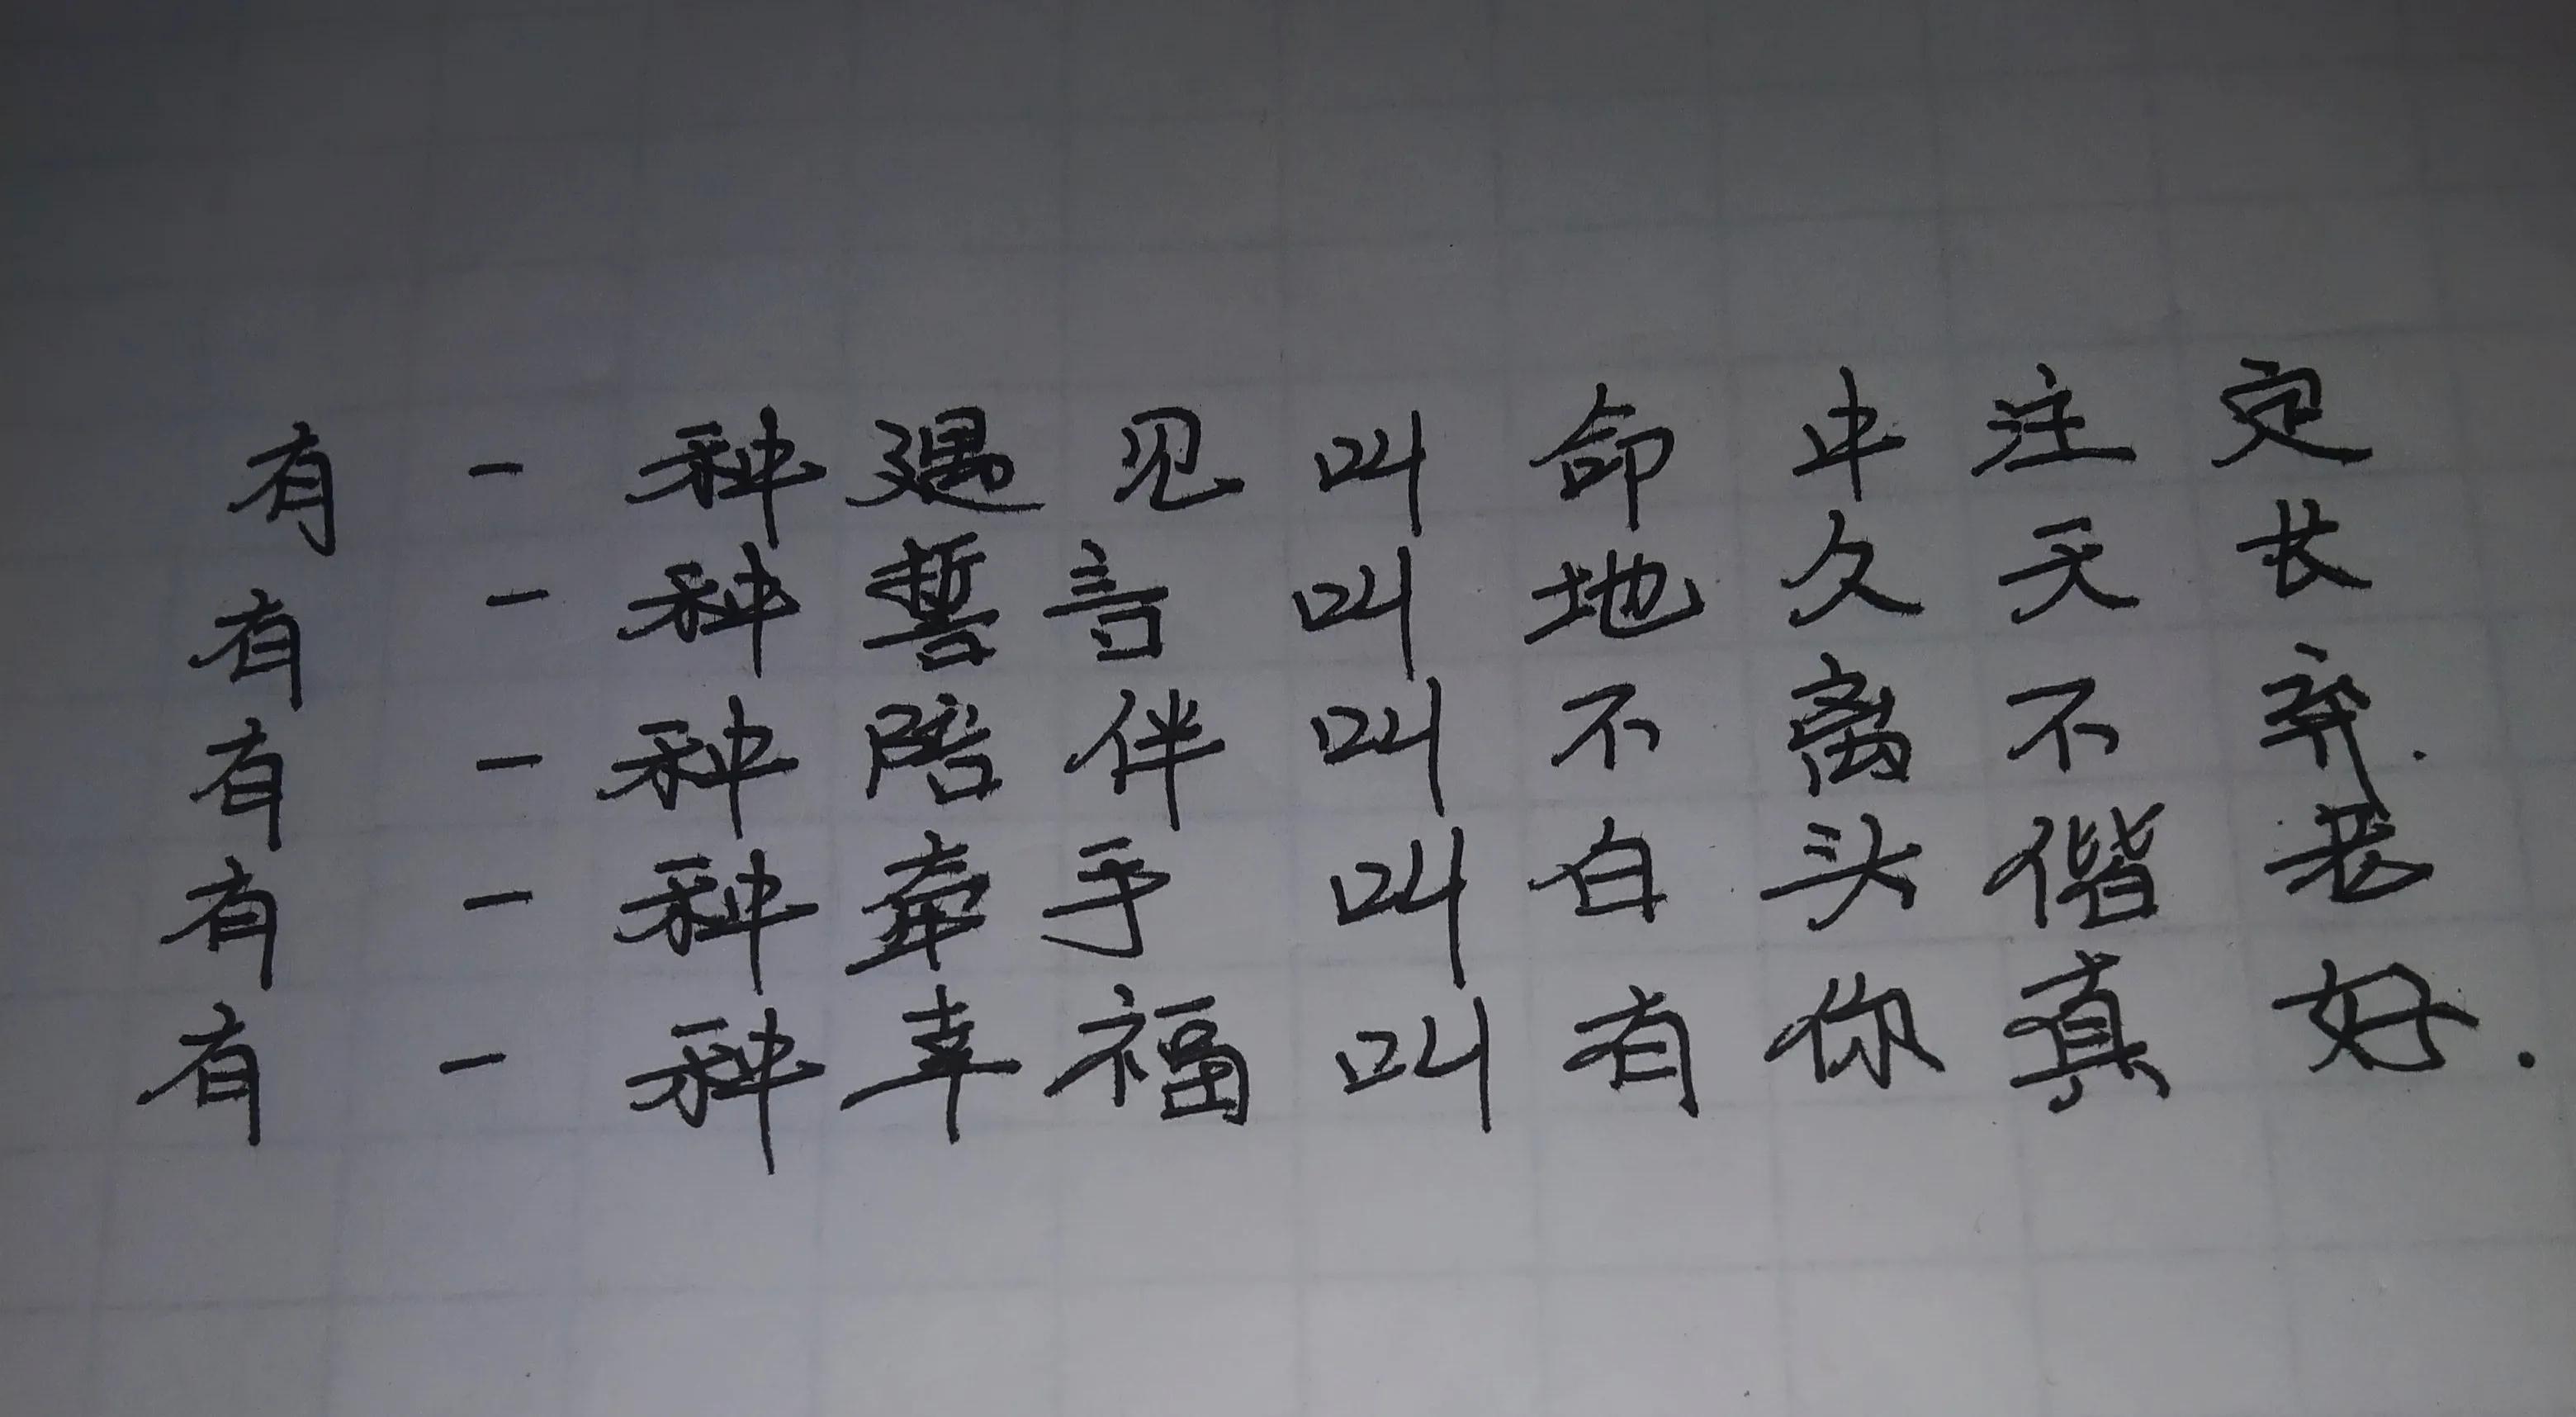 有一种遇见叫命中注定
有一种誓言叫地久天长
有一种陪伴叫不离不弃.
有一种牵手叫白头偕老
有一种幸福叫有你真好.